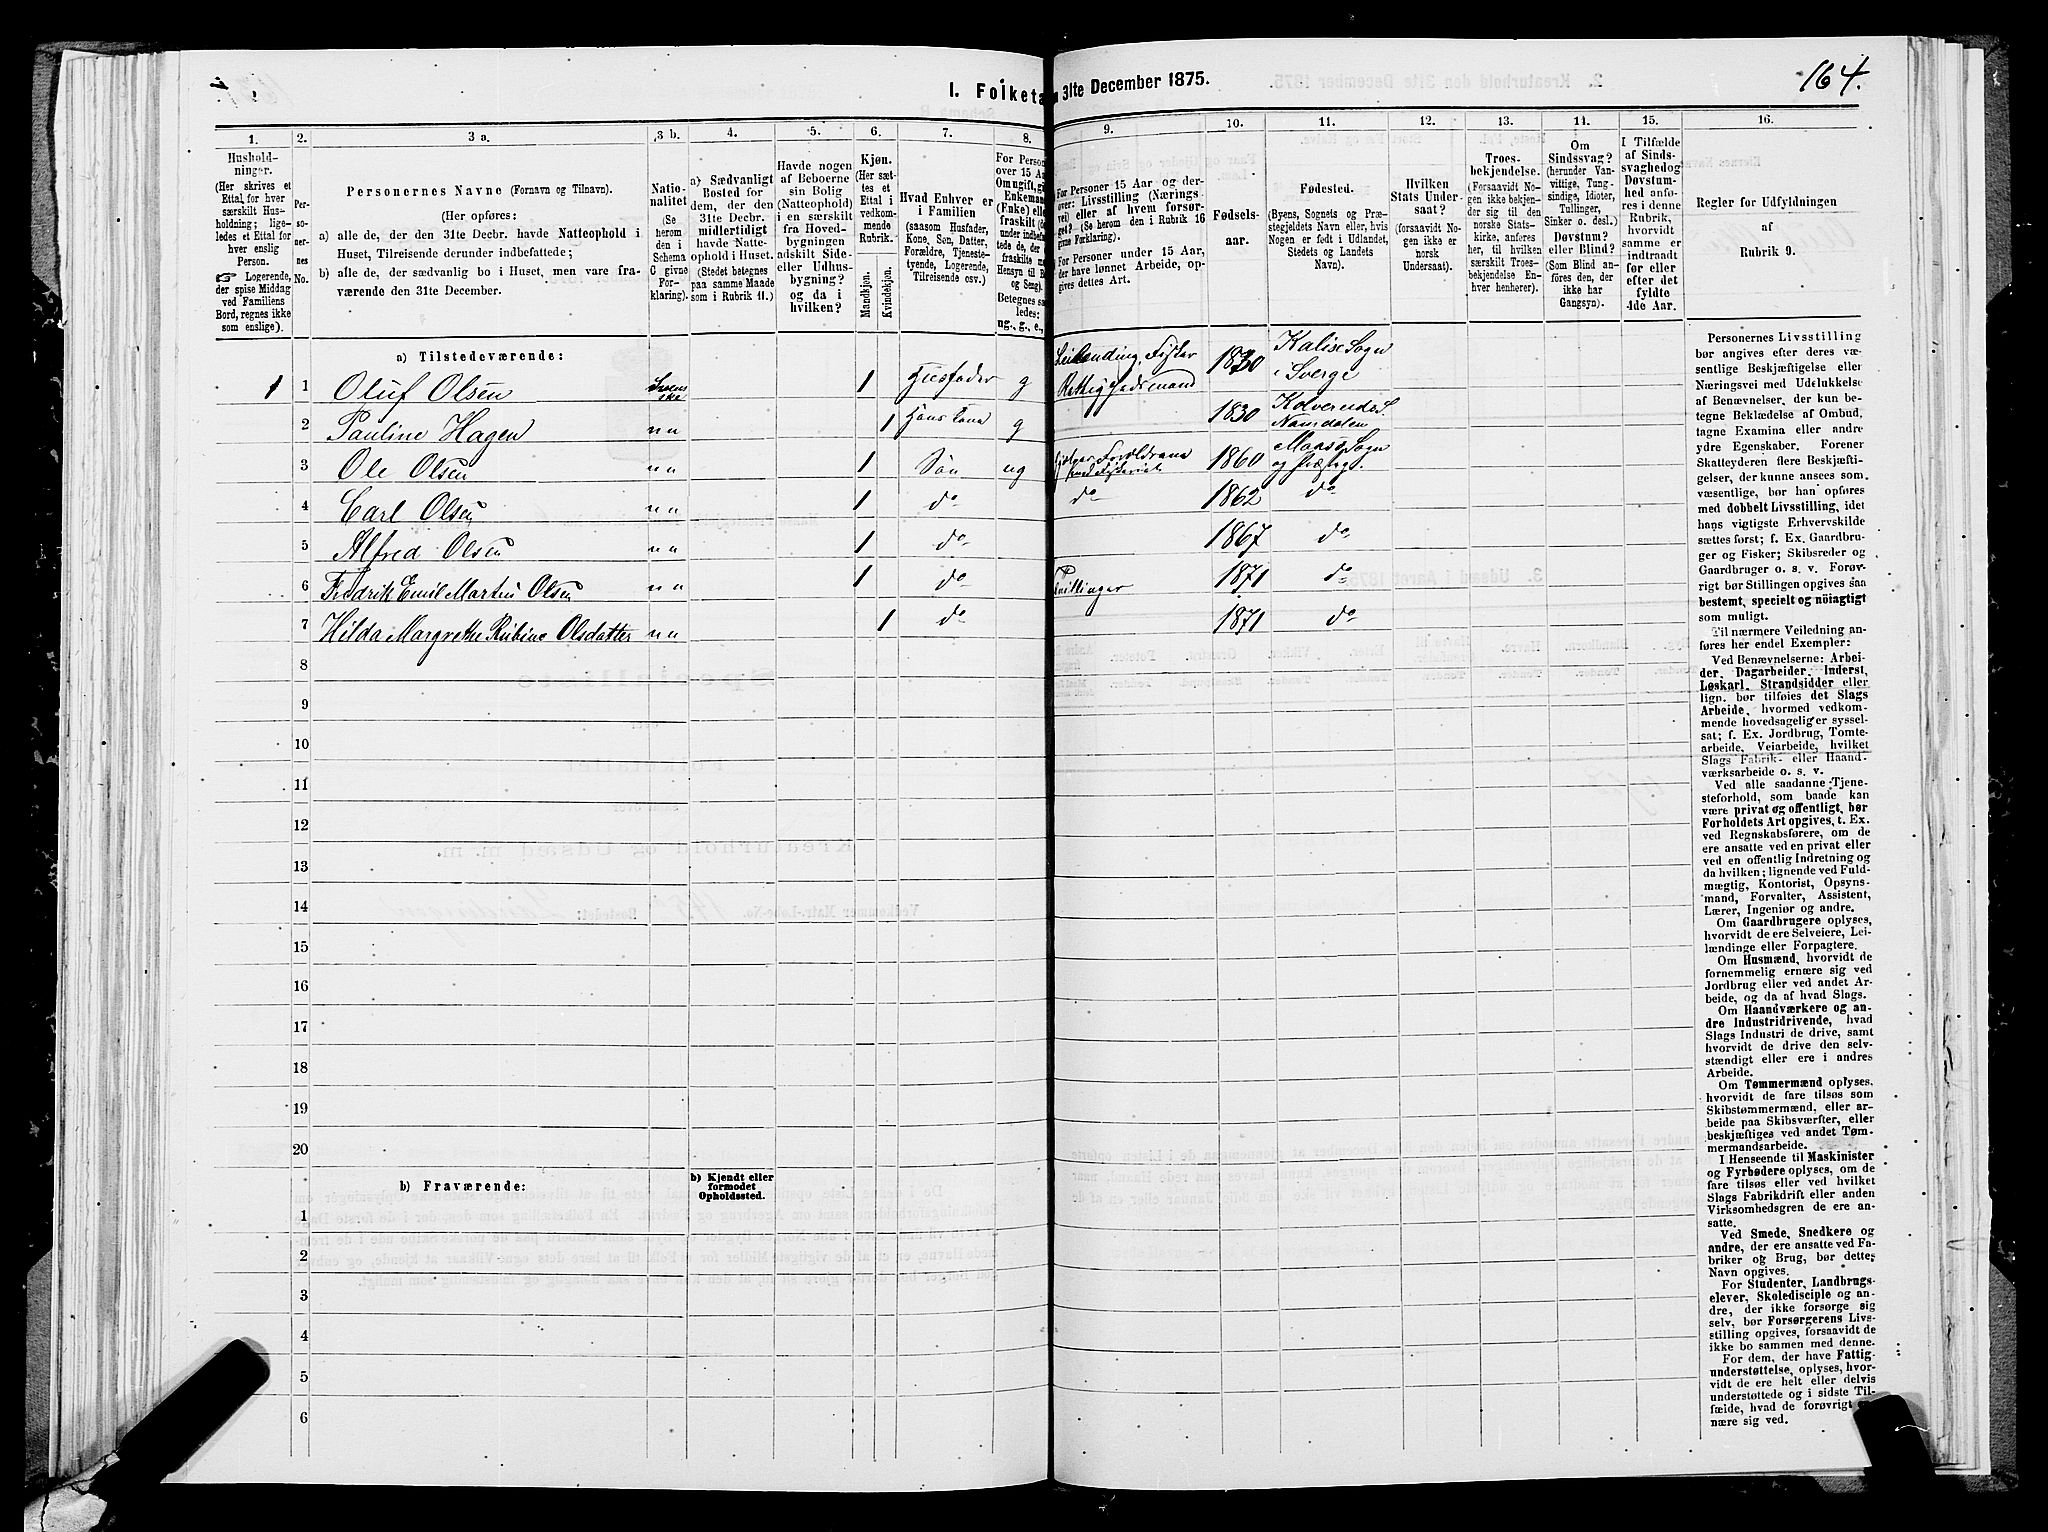 I. Folketa
n 31te December 1875.
164.
1.
2.
3 a.
3 b.
4.
5.
6.
7.
8.
9.
10.
11.
12.
13.
11.
15.
16.
Hushold-
ninger.
(Her skrives et
Ettal for hver
særskilt Hus-
holdning; lige-
ledes et Ettal for
hver enslig
Person.
☞ Logerende,
der spise Middag
ved Familiens
Bord, regnes ikke
som enslige).
Per-
so-
ner-
nes
No.
Personernes Navne (Fornavn og Tilnavn).
(Her opføres:
a) alle de, der den 31te Decbr. havde Natteophold i
Huset, Tilreisende derunder indbefattede;
b) alle de, der sædvanlig bo i Huset, men vare fra-
værende den 31te December.
Natio-
nalitet
(Se
herom
den i
Schema
C givne
For-
klaring).
a) Sædvanligt
Bosted for
dem, der den
31te Decbr.
midlertidigt
havde Natte-
ophold i Huset.
(Stedet betegnes
paa samme Maade
som i Rubrik 11.)
Havde nogen
af Beboerne
sin Bolig
(Natteophold)
i en særskilt
fra Hoved-
bygningen
adskilt Side-
eller Udhus-
bygning?
og da i
hvilken?
Kjøn.
(Her sæt-
tes et
Ettal i
vedkom-
mende
Rubrik.
Mandkjøn.
Kvindekjøn.
Hvad Enhver er
i Familien
(saasom Husfader,
Kone, Søn, Datter,
Forældre, Tjeneste-
tyende, Logerende,
Tilreisende osv.)
For Person
over 15 Aa
Om ugift, gi
Enkemand
(Enke) elle
fraskilt (o
Hensyn til B
og Seng).
Betegnes sa
ledes:
ug., g., e.,
For Personer 15 Aar og der-
over: Livsstilling (Nærings
vei) eller af hvem forsør-
get? (Se herom den i Rubrik 16
givne Forklaring).
For Personer under 15 Aar,
der have lønnet Arbeide, op-
gives dettes Art.
Fødsels-
aar.
Fødested.
(Byens, Sognets og Præ-
stegjeldets Navn eller, hvis
Nogen er født i Udlandet,
Stedets og Landets
Navn).
Hvilken
Stats Under-
saat?
(forsaavidt No-
gen ikke er
norsk
Undersaat).
Troes-
bekjendelse.
(Forsaavidt No-
gen ikke bekjen-
der sig til den
norske Stats-
kirke, anføres
her, til hvilken
særskilt Troes-
bekjendelse En-
hver henhører).
Om
Sindssvag?
(herunder Van-
vittige, Tung-
sindige, Idioter,
Tullinger,
Sinker o. desl.).
Døvstum?
eller Blind?
(Som Blind an-
føres den, der
ikke har
Gangsyn).
I Tilfælde
af Sinds-
svaghed og
Døvstum-
hed anfø-
res i denne
Rubrik,
hvorvidt
samme er
indtraadt
før eller
efter det
fyldte
4de Aar.
Regler for Udfyldningen
af
Rubrik 9.
a) Tilstedeværende:
1 1 Oluf Olsen Svens ske 1 Husfader g Leilending, Fisker Rettighedsmand 1830 Kalise Sogn i Sverge
2 Pauline Hagen n n 1 Hans Kone g 1830 Kolvereids S. Namdalen
3 Ole Olsen n n 1 Søn ug hjelper Forældrene med Fiskeriet 1860 Maasø Sogn og Præsteg.
4 Carl Olsen n n 1 do do 1862 do
5 Alfred Olsen n n 1 do 1867 do
6 Fredrik Emil Martin Olsen n n 1 do Tvillinger 1871 do
7 Hilda Margrethe Rubine Olsdatter n n 1 do 1871 do
8
9
10
11
12
13
14
15
16
17
18
19
20
b) Fraværende:
b) Kjendt eller
formodet
Opholdssted.
1
2
3
4
5
6
Personernes Livsstilling
bør angives efter deres væ-
sentlige Beskjæftigelse eller
Næringsvei med Udelukkelse
af Benævnelser, der kun be-
tegne Beklædelse af Ombud,
tagne Examina eller andre
ydre Egenskaber. Forener
Skatteyderen flere Beskjæfti-
gelser, der kunne ansees som
væsentlige, bør han opføres
med dobbelt Livsstilling, idet
hans vigtigste Erhvervskilde
sættes først; f. Ex. Gaardbru-
ger og Fisker; Skibsreder og
Gaardbruger o. s. v. Forøv-
rigt bør Stillingen opgives saa
bestemt, specielt og nöiagtigt
som muligt.
Til nærmere Veiledning an-
føres her endel Exempler:
Ved Benævnelserne: Arbei-
der, Dagarbeider, Inderst,
Løskarl, Strandsidder eller
lign. bør tilføies det Slags
Arbeide, hvormed vedkom-
mende hovedsagelig er syssel-
sat; f. Ex. Jordbrug, Tomte-
arbeide, Veiarbeide, hvilket
Slags Fabrik- eller Haand-
værksarbeide o. s. v.
Ved alle saadanne Tjene-
steforhold, som baade kan
være privat og offentligt, bør
Forholdets Art opgives, t. Ex.
ved Regnskabsførere, om de
ere ansatte ved en privat eller
ved en offentlig Indretning og
da hvilken; lignende ved Fuld-
mægtig, Kontorist, Opsyns-
mand, Forvalter, Assistent,
Lærer, Ingeniør og andre.
Om Gaardbrugere oplyses,
hvorvidt de ere Selveiere, Lei-
lændinge eller Forpagtere.
Om Husmænd, hvorvidt de
fornemmelig ernære sig ved
Jordbrug eller ved andet Ar-
beide, og da af hvad Slags.
Om Haandværkere og an-
dre Industridrivende, hvad
Slags Industri de drive, samt
hvorvidt de drive den selv-
stændigt eller ere i andres
Arbeide.
Om Tømmermænd oplyses,
hvorvidt de fare tilsøs som
Skibstømmermænd, eller ar-
beide paa Skibsværfter, eller
beskjæftiges ved andet Tøm-
mermandsarbeide.
I Henseende til Maskinister
og Fyrbødere oplyses, om de
fare tilsøs eller ved hvilket
Slags Fabrikdrift eller anden
Virksomhedsgren de ere an-
satte.
Ved Smede, Snedkere og
andre, der ere ansatte ved Fa-
briker og Brug, bør dettes
Navn opgives.
For Studenter, Landbrugs-
elever, Skoledisciple og an-
dre, der ikke forsørge sig
selv, bør Forsørgerens Livs-
stilling opgives, forsaavidt de
ikke bo sammen med denne.
For dem, der have Fattig-
understøttelse, oplyses, hvor-
vidt de ere helt eller delvis
understøttede og i sidste Til-
fælde, hvad de forøvrigt er-
nære sig ved.